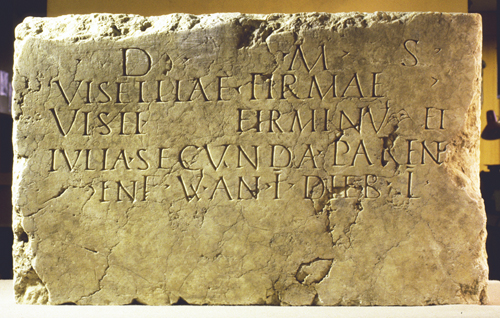 D · M · S
VISELLIAE · FIRMAE
VISELL FIRMINV · ET
IVLIA · SECVNDA PAREN
AN · I · DIEB · L